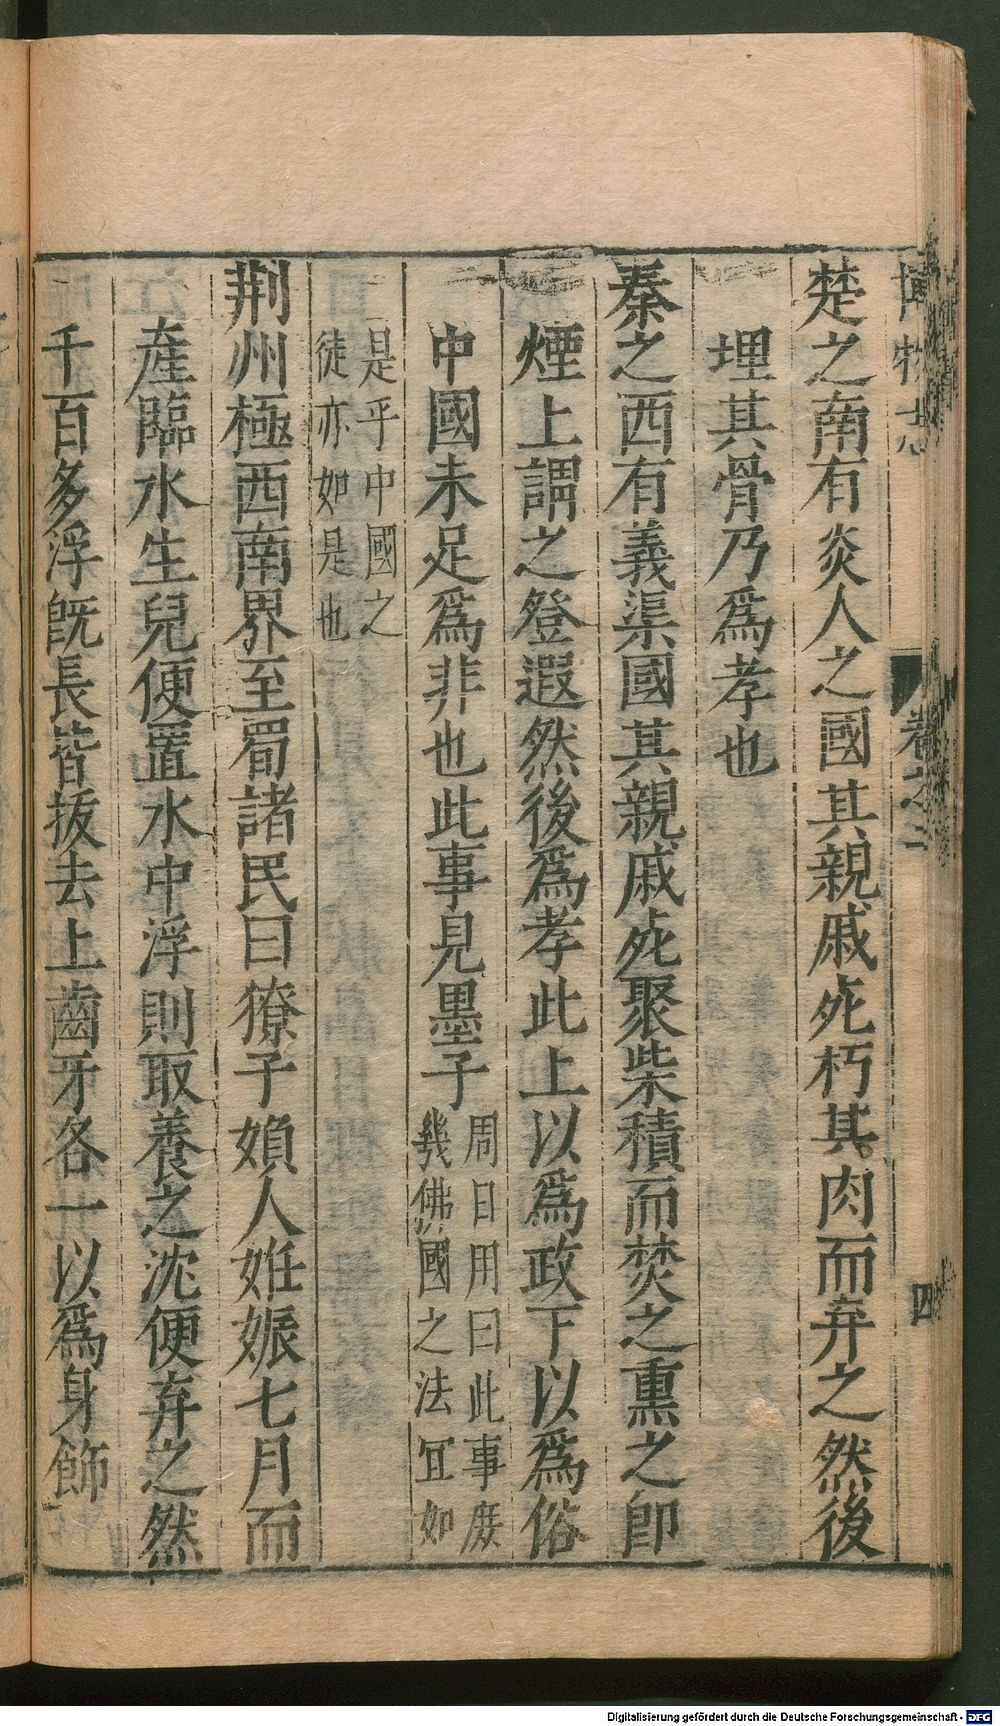 博物志 卷之二 四
楚之南有炎人之國其親戚死朽其肉而弃之然後
埋其骨乃爲孝也
秦之西有義渠國其親戚死聚柴積而焚之熏之卽
煙上謂之登遐然後爲孝此上以爲政下以爲俗
中國未足爲非也此事見墨子周日用曰此事庶
幾佛國之法冝如
是乎中國之
徒亦如是也
荆州極西南界至蜀諸民曰獠子婦人姙娠七月而
產臨水生兒便置水中浮則取養之沈便弃之然
千百多浮旣長皆拔去上齒牙各一以爲身飾
Digitalisierung gefördert durch die Deutsche Forschungsgemeinschaft - DFG